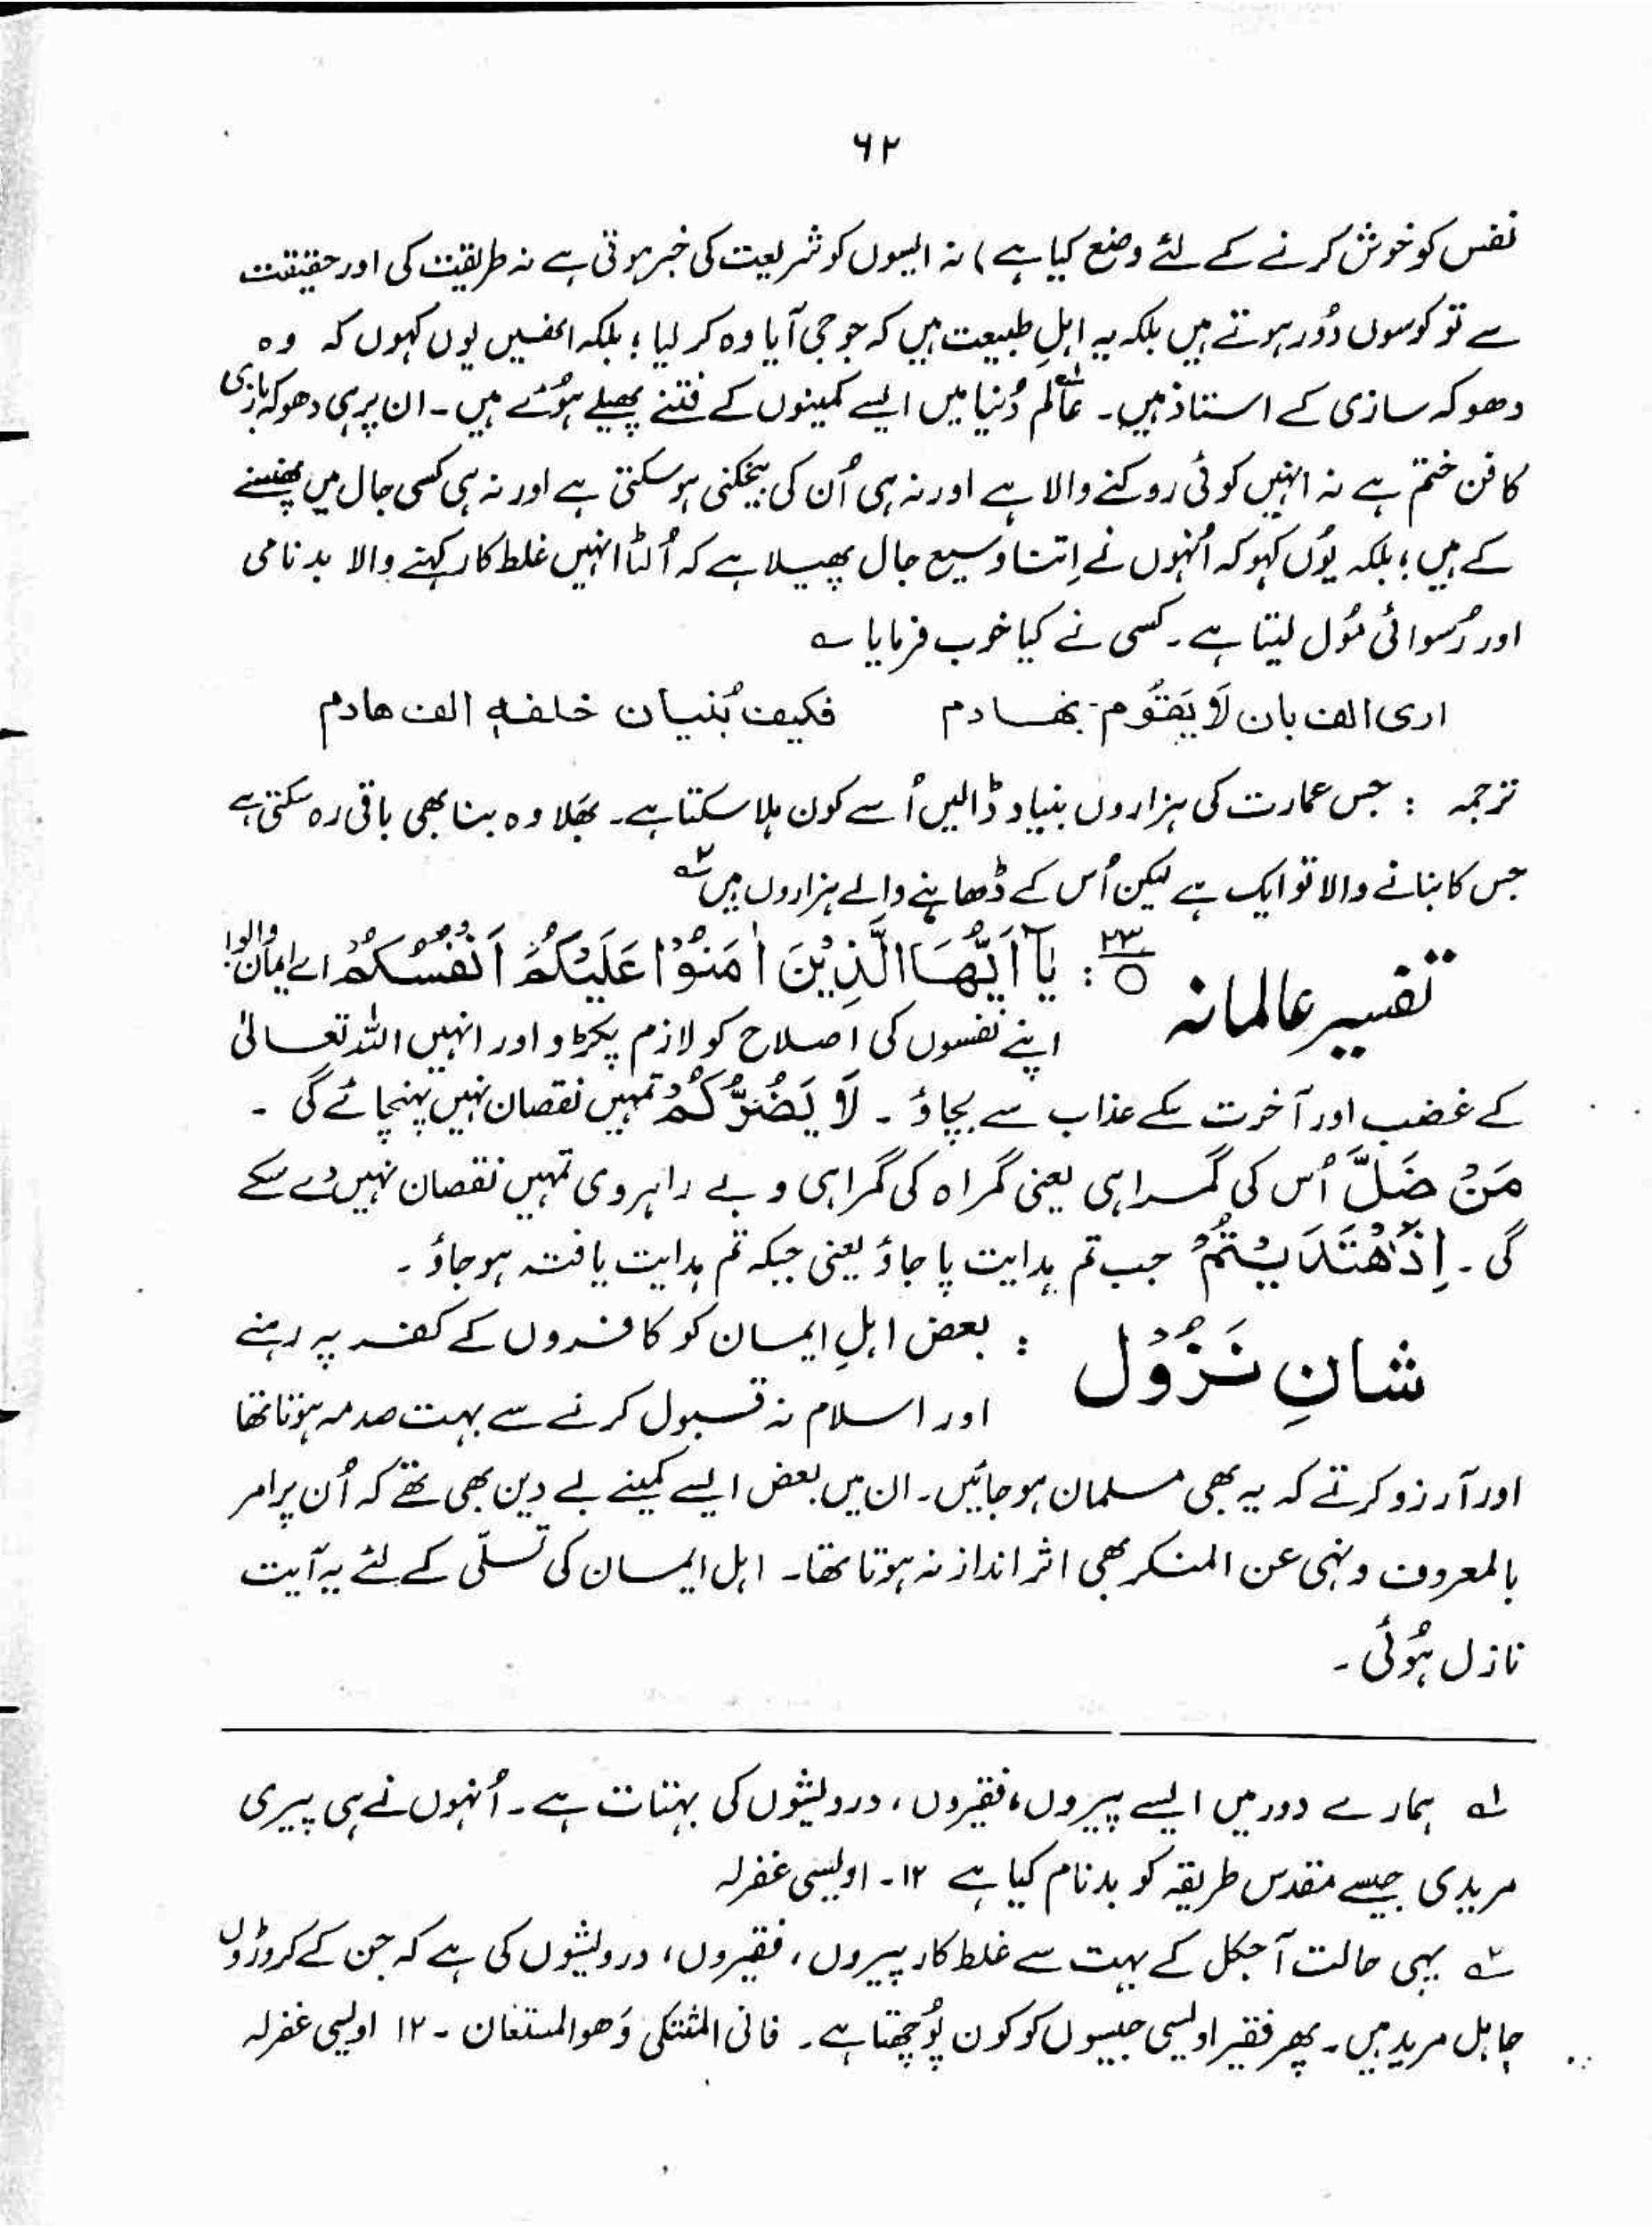 ۶۲
نفس کو خوش کرنے کے لئے وضع کیا ہے) نہ ایسوں کو شریعت کی خبر ہوتی ہے نہ طریقت کی اور حقیقت
سے تو کوسوں دُور ہوتے ہیں بلکہ یہ اہلِ طبیعت ہیں کہ جو جی آیا وہ کر لیا؛ بلکہ انھیں یوں کہوں کہ وہ
دھوکہ سازی کے استاذ ہیں۔ عالَم دُنیا میں ایسے کمینوں کے فتنے پھیلے ہُوئے ہیں۔ ان پر ہی دھوکہ بازی
کا فن ختم ہے نہ انہیں کوئی روکنے والا ہے اور نہ ہی اُن کی بیخکنی ہو سکتی ہے اور نہ ہی کسی جال میں پھنسنے
کے ہیں؛ بلکہ یُوں کہو کہ اُنہوں نے اِتنا وسیع جال پھیلا ہے کہ اُلٹا انہیں غلط کار کہنے والا بدنامی
اور رُسوائی مُول لیتا ہے۔ کسی نے کیا خوب فرمایا ؎
اری الف بان لَا یَقُوم بھادم فکیف بُنیان خلفہٖ الف ھادم
ترجمہ : جس عمارت کی ہزاروں بنیاد ڈالیں اُسے کون ہلا سکتا ہے۔ بھَلا وہ بنا بھی باقی رہ سکتی ہے
جس کا بنانے والا تو ایک ہے لیکن اُس کے ڈھاہنے والے ہزاروں ہیں ۲ؔ
تفسیر عالمانہ ۲۳ : یٰٓاَیُّھَا الَّذِیْنَ اٰمَنُوْا عَلَیْکُمْ اَنْفُسَکُمْ اے ایمان والو!
اپنے نفسوں کی اصلاح کو لازم پکڑو اور انہیں اللہ تعالیٰ
کے غضب اور آخرت کے عذاب سے بچاؤ۔ لَا یَضُرُّکُمْ تمہیں نقصان نہیں پہنچائے گی۔
مَنْ ضَلَّ اُس کی گمراہی یعنی گمراہ کی گمراہی و بے راہروی تمہیں نقصان نہیں دے سکے
گی۔ اِذَا ھْتَدَیْتُمْ جب تم ہدایت پا جاؤ یعنی جبکہ تم ہدایت یافتہ ہو جاؤ۔
شانِ نَزُوْل : بعض اہلِ ایمان کو کافروں کے کفر پہ رہنے
اور اسلام نہ قبول کرنے سے بہت صدمہ ہوتا تھا
اور آرزو کرتے کہ یہ بھی مسلمان ہو جائیں۔ ان میں بعض ایسے کمینے بے دین بھی تھے کہ اُن پر امر
بالمعروف و نہی عن المنکر بھی اثر انداز نہ ہوتا تھا۔ اہل ایمان کی تسلّی کے لئے یہ آیت
نازل ہُوئی۔
۱ؔ ہمارے دور میں ایسے پیروں، فقیروں، درویشوں کی بہتات ہے۔ اُنہوں نے ہی پیری
مریدی جیسے مقدس طریقہ کو بدنام کیا ہے ۱۲۔ اویسی غفرلہ
۲ؔ یہی حالت آجکل کے بہت سے غلط کار پیروں، فقیروں، درویشوں کی ہے کہ جن کے کروڑوں
جاہل مرید ہیں۔ پھر فقیر اویسی جیسوں کو کون پُوچھتا ہے۔ فانی المشتکی وَھو المستعان ۔ ۱۲ اویسی غفرلہ